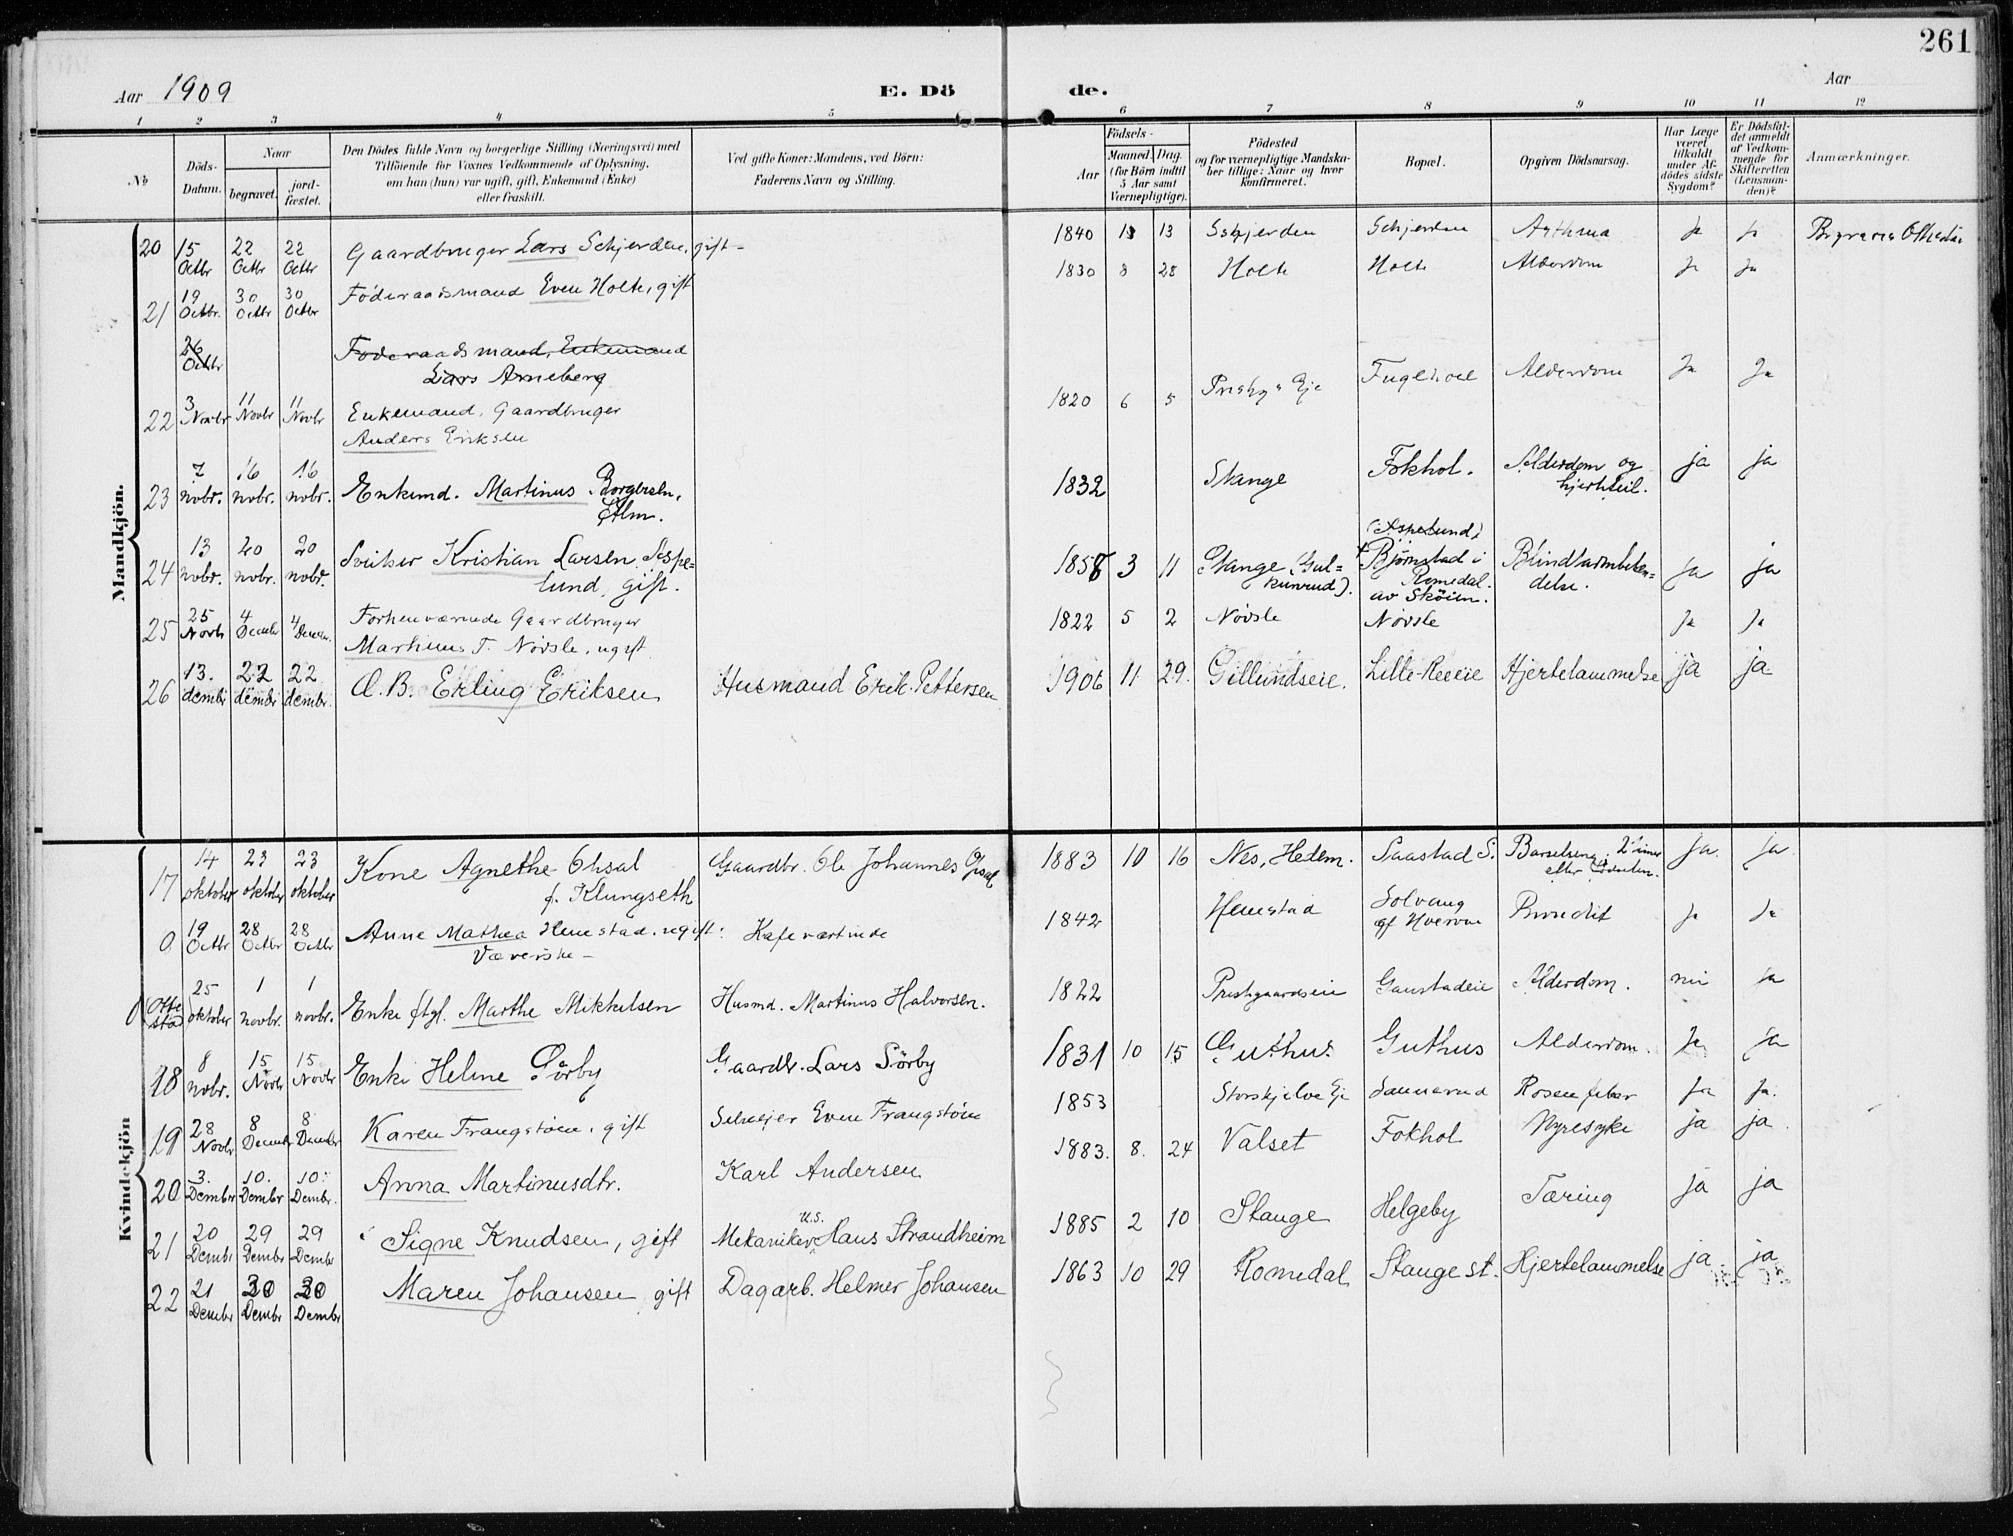 261
Aar 1909
E. Dö
de.
Aar
1 2 3 4 5 6 7 8 9 10 11 12
No
Döds-Datum.
Naar
begravet.
jord-fæstet.
Den Dödes fulde Navn og borgerlige Stilling (Næringsvei) med
Tilföiende for Voxnes Vedkommende af Oplysning,
om han (hun) var ugift, gift, Enkemand (Enke)
eller fraskilt.
Ved gifte Koner: Mandens, ved Börn:
Faderens Navn og Stilling.
Födsels-
Aar
Maaned. Dag.
(for Börn indtil
5 Aar samt
Værnepligtige).
Födested
og for værnepligtige Mandska-
ber tillige: Naar og hvor
konfirmeret.
Bopæl.
Opgiven Dödsaarsag.
Har Læge
været
tilkaldt
under Af-
dödes sidste
Sygdom?
Er Dödsfal-
det anmeldt
af Vedkom-
mende for
Skifteretten
(Lensman-
den)?
Anmærkninger.
Mandkjön.
20 15 Octbr 22 Octbr 22 Octbr Gaardbruger Lars Schjerden, gift- 1840 13 Schjerden Schjerden Asthma Ja Ja
21 19 Octbr. 30 Octbr 30 Octbr Föderaadsmand Even Holte, gift 1830 8 28 Holte Holte Alderdom Ja Ja
26 Octbr Föderaadsmand, Enkemand
Lars Arneberg
22 3 Novbr 11 Novbr 11 Novbr Enkemand, Gaardbruger
Anders Eriksen 1820 6 5 Eje Alderdom Ja Ja
23 7 novbr. 16 novbr. 16 novbr. Enkemd. Martinus Borgersen,
Alm. 1832 Stange Fokhol. Alderdom og
hjertefeil. ja ja
24 13 novbr. 20 novbr. 20 novbr. Sveitser Kristian Larsen Aspe-
lund, gift. 1858 3 11 Stange (Gul-
kunrud). (Aspelund)
Bjørnstad i
Romedal.
av Sköien. Blindtarmbeten-
delse. ja ja
25 25 Novbr 4 Decembr 4 Decem. Forhenværende Gaardbruger
Martinus T. Növsle, ugift 1822 5 2 Növsle Növsle Ja Ja
26 13. dembr 22 dembr 22 dembr. A. B. Erling Eriksen Husmand Erik Pettersen 1906 11 29. Gillundseie. Lille-Reeeie Hjertelammelse ja ja
Kvindekjön
17 14 oktober 23 oktober 23 oktober Kone Agnethe Opsal
f. Klungseth Gaardbr. Ole Johannes Opsal 1883 10 16 Nes, Hedem. Saastad S. ja. ja.
0 19 Octbr 28 Octbr 28 Octbr Anne Mathea Hemstad, ugift.
Væverske- Kafeværtinde 1842 Hemstad Solvang
af Hverven Ja Ja
0 Otte-
stad 25 oktober 1 novbr. 1 novbr. Enke ftgl. Marthe Mikkelsen Husmd. Martinus Halvorsen. 1822 Prestgaardseie Gaustadeie Alderdom. nei ja
18 8 novbr. 15 Novbr 15 Novbr Enke Helene Sörby Gaardbr. Lars Sörby 1831 10 15 Guthus Guthus Alderdom. Ja ja
19 28 Novbr 8 Decembr 8 Decembr Karen Frangstöen, gift Selvejer Even Frangstöen 1853 Storskjelve Eje Sannerud Rosenfeber Ja Ja.
20 3. Dembr 10. Dembr 10. Dembr. Anna Martinusdtr. Karl Andersen 1883. 8. 24 Valset Fokhol Nyresyke ja ja.
21 20 Dembr 29 Dembr 29 Dembr Signe Knudsen, gift Mekaniker, U.S. Hans Strandheim 1885 2 10 Stange Helgeby Tæring ja ja
22 21 Dembr 30 Dembr 30 Dembr Maren Johansen, gift Dagarb. Helmer Johansen 1863 10 29 Romedal Stange st. Hjertelammelse ja ja